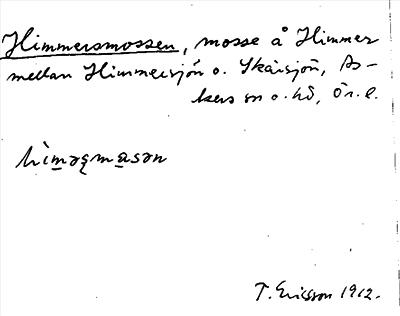 Himmersmossen, mosse å Himmer
mellan Himmersjön o. Skärsjön, As-
kers sn o. hd, Ör. l.
hìmǝʂmasǝn
T. Ericsson 1912.